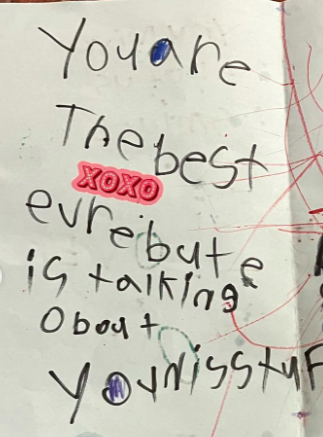 You are
The best
xoxo
evreibute
is talking
Obout
Younisstuf